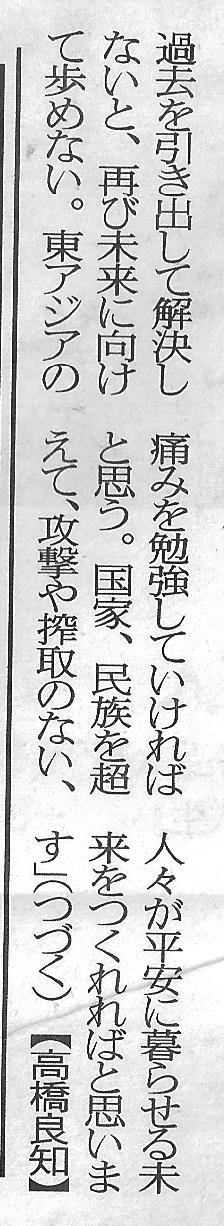 過去を引き出して解決し
ないと、再び未来に向け
て歩めない。東アジアの
痛みを勉強していければ
と思う。国家、民族を超
えて、攻撃や搾取のない、
人々が平安に暮らせる未
来をつくれればと思いま
す」（つづく）【高橋良知】